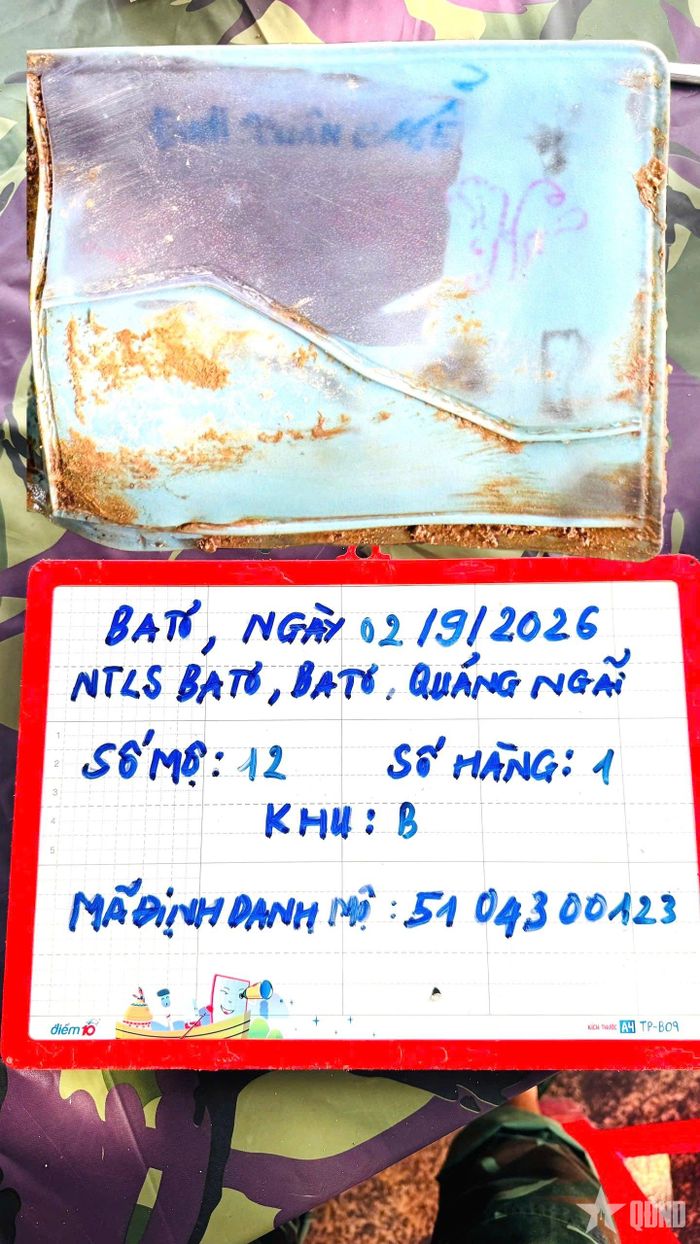 BATƠ, NGÀY 02/9/2026
NTLS BATƠ, BATƠ. QUẢNG NGÃI
SỐ MỘ: 12 SỐ HÀNG: 1
KHU: B
MÃ ĐỊNH DANH MỘ: 5104300123
1
2
3
4
5
điểm 10
KÍCH THƯỚC A4 TP-B09
QĐND